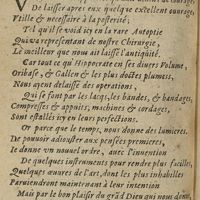 De laisser apres eux quelque excellent ouurage,
Vtille & necessaire à la posterité;
Tel qu'il se void icy en la rare Autoptie
Qui va representant de nostre Chirurgie,
Le meilleur que nous ait laissé l'antiquité.
Car tout ce qu'Hippocrate en ses diuers Volume,
Oribase, & Gallen & les plus doctes plumes,
Nous ayent delaissé des operations,
Qui se font par les lacqs, les bandes, & bandages,
Compresses & appuits, machines & cordages,
Sont establis icy en leurs perfections.
Or parce que le temps, nous donne des lumieres.
De pouuoir adiouster aux pensées premieres,
Ie donne vn nouuel ordre, auec l'inuention
De quelques instruments pour rendre plus facilles,
Quelques œuures de l'art, dont les plus inhabilles
Paruiendront maintenant à leur intention
Mais par le bon plaisir du grãd Dieu qui nous donne